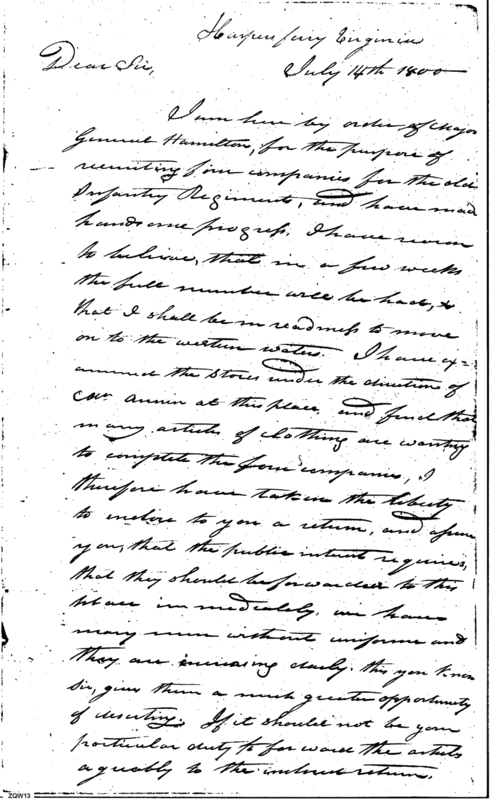 Harpers ferry Virginia
July 14th 1800
Dear Sir,
I am here by order of Major
General Hamilton, for the purpose of
recruiting four companies for the old
Infantry Regiments, and have made
handsome progress. I have reason
to believe, that in a few weeks
the full number will be had, &
that I shall be in readiness to move
on to the western waters. I have ex=
amined the Stores under the direction of
Annin at this place, and find that
many articles of clothing are wanting
to complete the four companies, I
therefore have taken the liberty
to inclose to you a return, and assure
you, that the public interest requires,
that they should be forwarded to this
place immediately. we have
many men without uniforms and
they are increasing daily. this you know
Sir, gives them a much greater opportunity
of deserting. If it should not be your
particular duty to forward the articles
agreably to the inclosed return,
ZQW13